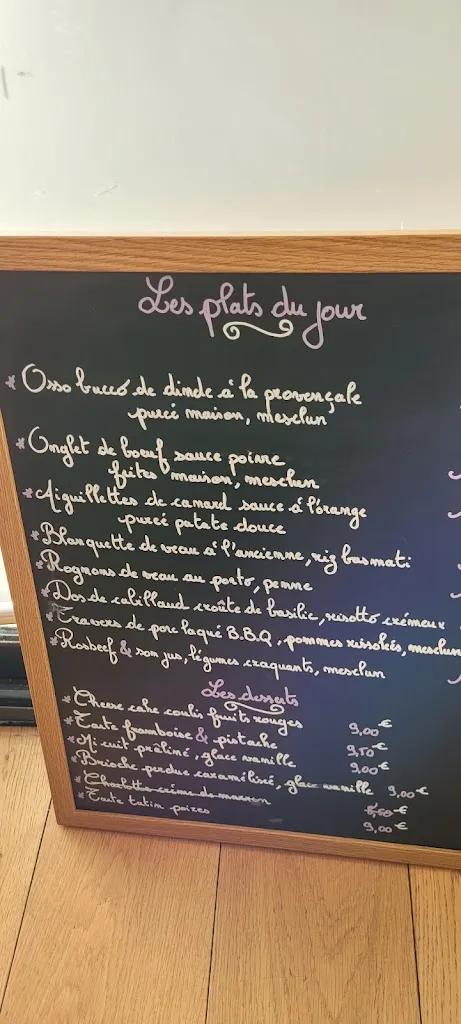 Les plats du jour
* Osso bucco de dinde à la provençale
purée maison, mesclun
* Onglet de boeuf sauce poivre
frites maison, mesclun
* Aiguillettes de canard sauce à l'orange
purée patate douce
* Blanquette de veau à l'ancienne, riz basmati
* Rognons de veau au porto, penne
* Dos de cabillaud croûte de basilic, risotto crémeux
* Travers de porc laqué B.B.Q, pommes rissolés, mesclun
* Rosbeef & son jus, légumes craquants, mesclun
Les desserts
* Cheese cake coulis fruits rouges 9,00€
* Tarte framboise & pistache 9,50€
* Mi cuit praliné, glace vanille 9,00€
* Brioche perdue caramélisée, glace vanille 9,00€
* Charlotte crème de marron 8,50€
* Tarte tatin poires 9,00€